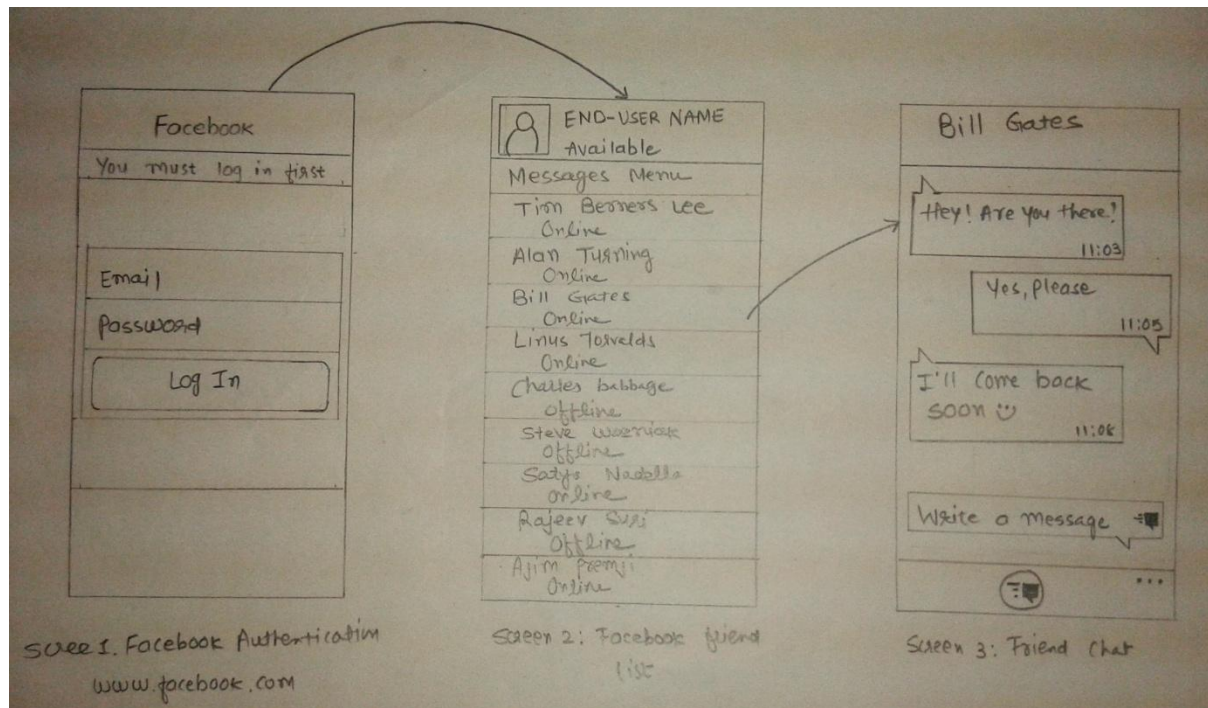 Facebook
You must log in first
Email
Password
Log In
Scree 1. Facebook Authentication
www.facebook.com
END-USER NAME
Available
Messages Menu
Tim Berners Lee
Online
Alan Turning
Online
Bill Gates
Online
Linus Torvalds
Online
Charles babbage
Offline
Steve Wozniak
Offline
Satya Nadella
Online
Rajeev Suri
Offline
Ajim Premji
Online
Screen 2: Facebook friend
list
Bill Gates
Hey! Are you there!
11:03
Yes, please
11:05
I'll come back
soon
11:08
Write a message
...
Screen 3: Friend Chat